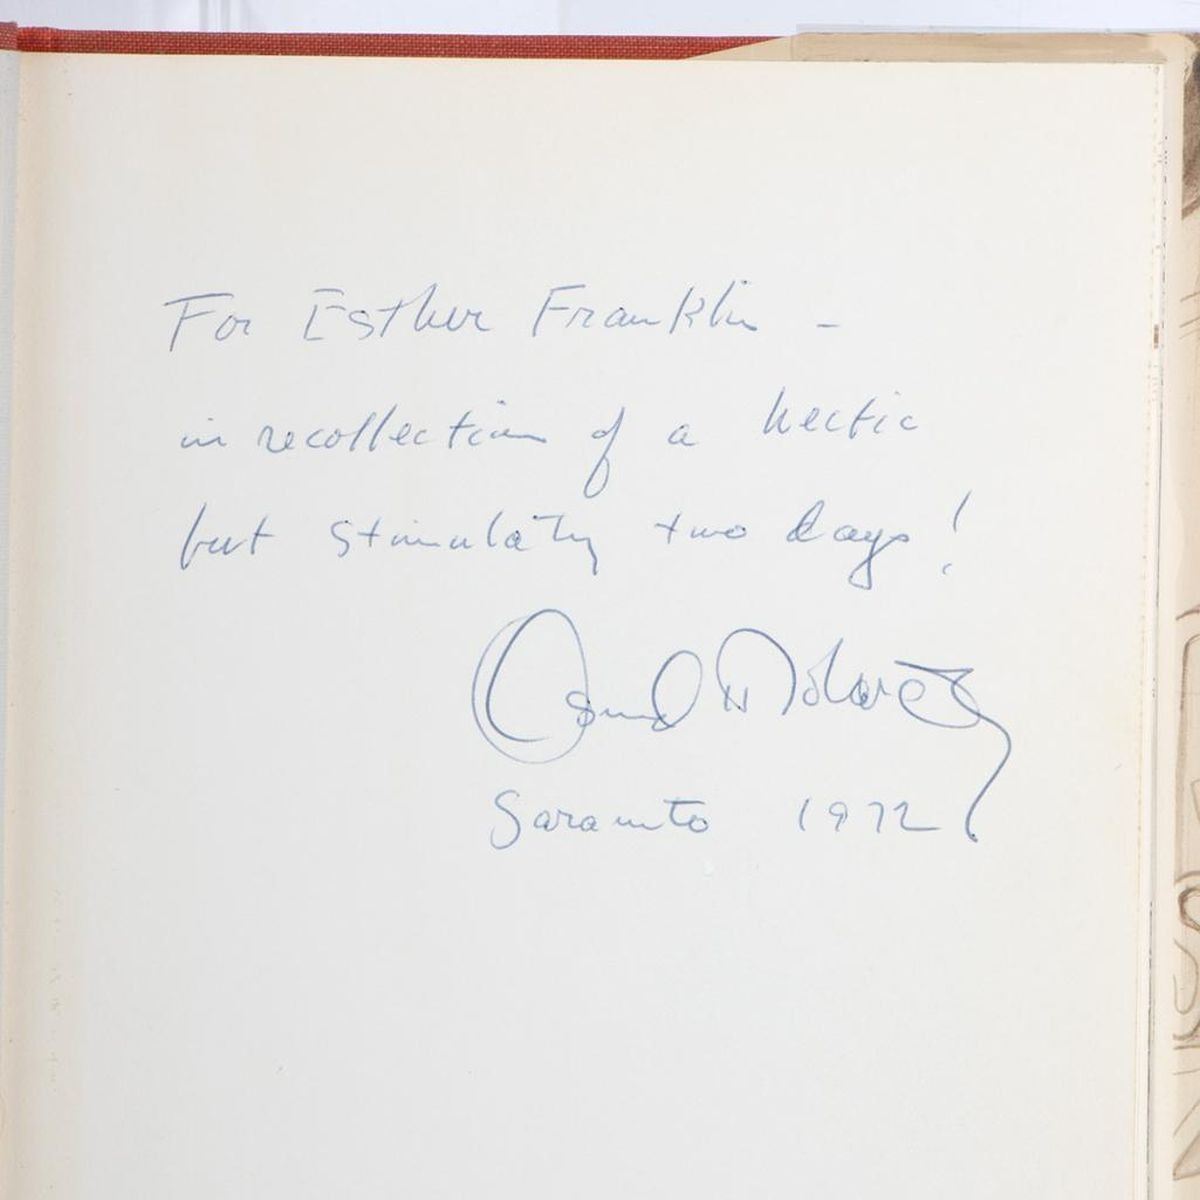 For Esther Franklin -
in recollection of a hectic
but stimulating two days!
1972